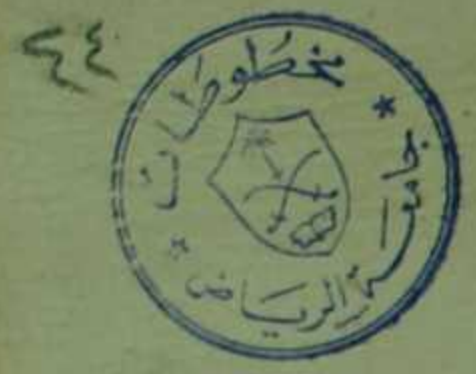 ٤٤
مخطوطات
جامعة الرياض